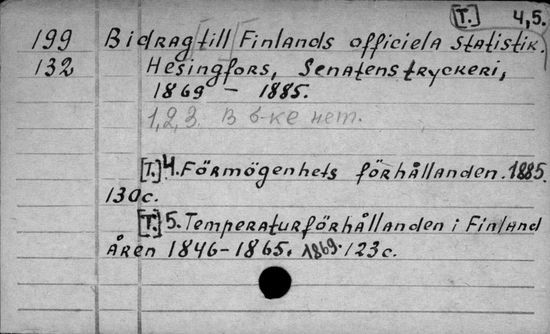 [T.] 4,5.
199 Bidrag till Finlands officiela statistik.
132 Hesingfors, Senatens tryckeri,
1869 – 1885.
1,2,3. В б-ке нет.
[T.] 4. Förmögenhets förhållanden. 1885.
130с.
[T.] 5. Temperaturförhållanden i Finland
åren 1846-1865. 1869. 123с.